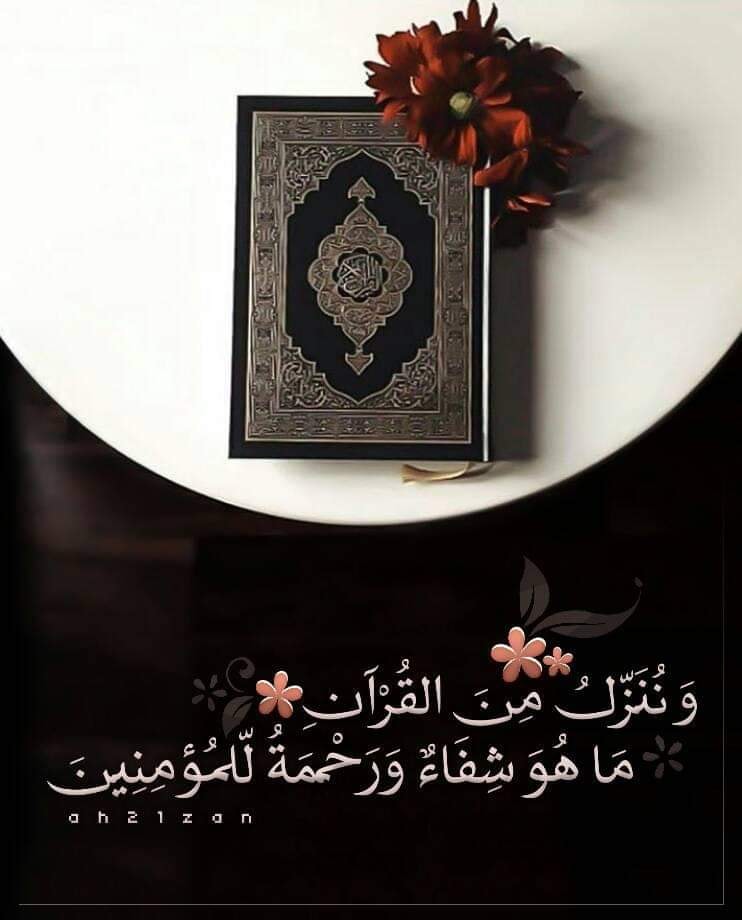 القرآن الكريم
وَنُنَزِّلُ مِنَ القُرْآنِ
مَا هُوَ شِفَاءٌ وَرَحْمَةُ لِّلمُؤمِنِينَ
ah21zan